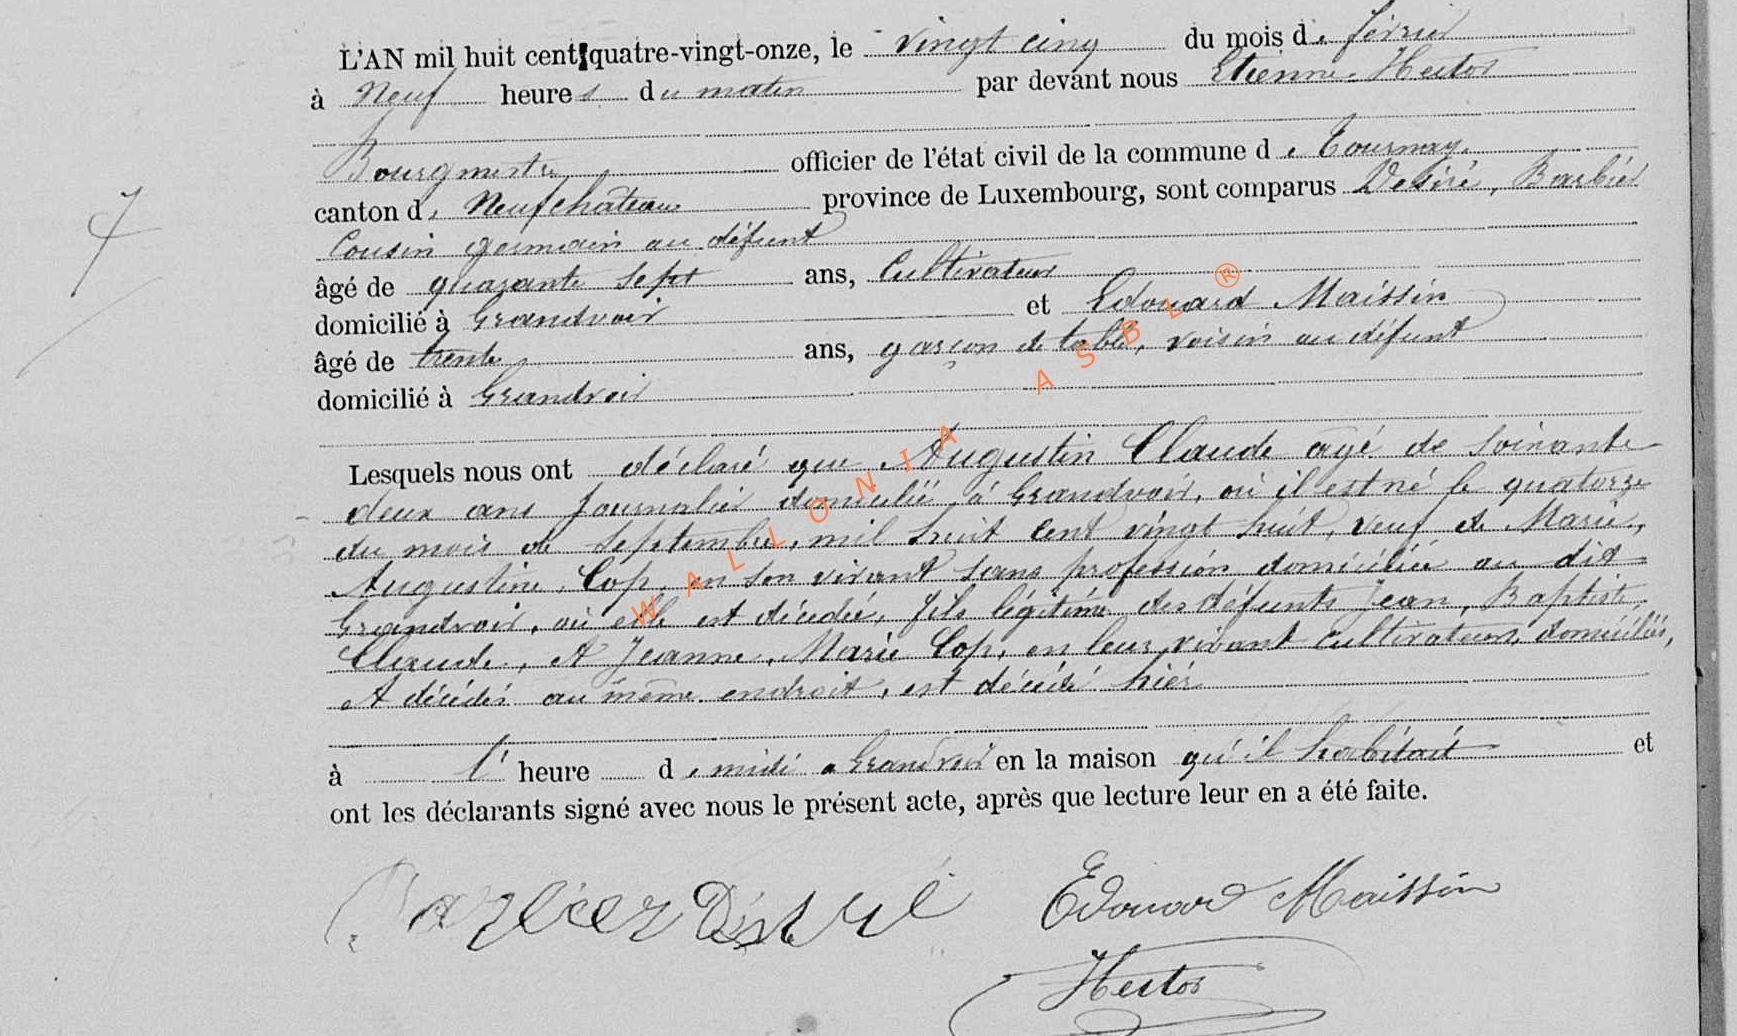 L'AN mil huit cent quatre-vingt-onze, le vingt cinq du mois de février
à Neuf heures du matin par devant nous Etienne Hector
Bourgmestre officier de l'état civil de la commune de Tournay.
canton de Neufchâteau province de Luxembourg, sont comparus Désiré, Barbier
Cousin germain au défunt
âgé de quarante sept ans, Cultivateur
domicilié à Grandvoir et Edouard Maissin
âgé de trente ans, garçon de table, voisin au défunt
domicilié à Grandvoir
7
Lesquels nous ont déclaré que Augustin Claude agé de soixante
deux ans Journalier domicilié à Grandvoir, où il est né le quatorze
du mois de septembre, mil huit cent vingt huit, veuf de Marie,
Augustine, Cop, en son vivant sans profession domiciliée au dit
Grandvoir, où elle est décédée, fils légitime des défunts Jean, Baptiste,
Claude, et Jeanne, Marie Cop, en leur vivant cultivateurs, domiciliés,
et décédés au même endroit, est décédé hier
à l' heure de midi a Grandvoir en la maison qu'il habitait et
ont les déclarants signé avec nous le présent acte, après que lecture leur en a été faite.
Barbier Désiré Edouard Maissin
Hector
WALLONIA ASBL ®